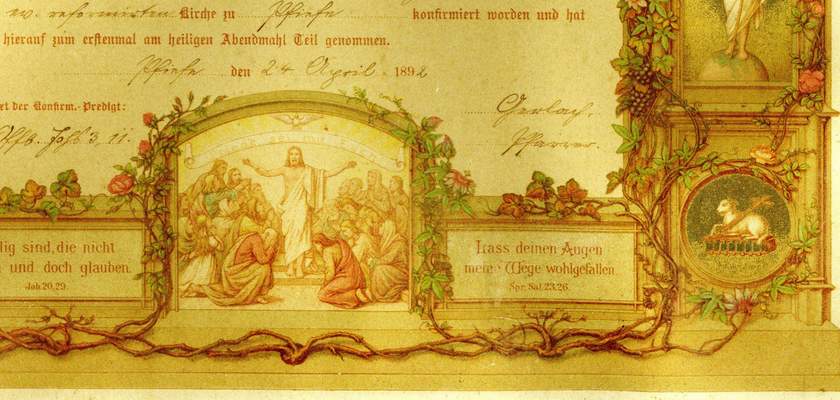 ev. reformirten Kirche zu Pfiefe konfirmiert worden und hat
hierauf zum erstenmal am heiligen Abendmahl Teil genommen.
Pfiefe den 24 April 1892
et der Konfirm.-Predigt:
Gerlach,
Offb. Joh. 3, 11.
Pfarrer.
lig sind, die nicht
und doch glauben.
Joh. 20,29.
Lass deinen Augen
meine Wege wohlgefallen.
Spr. Sal. 23,26.